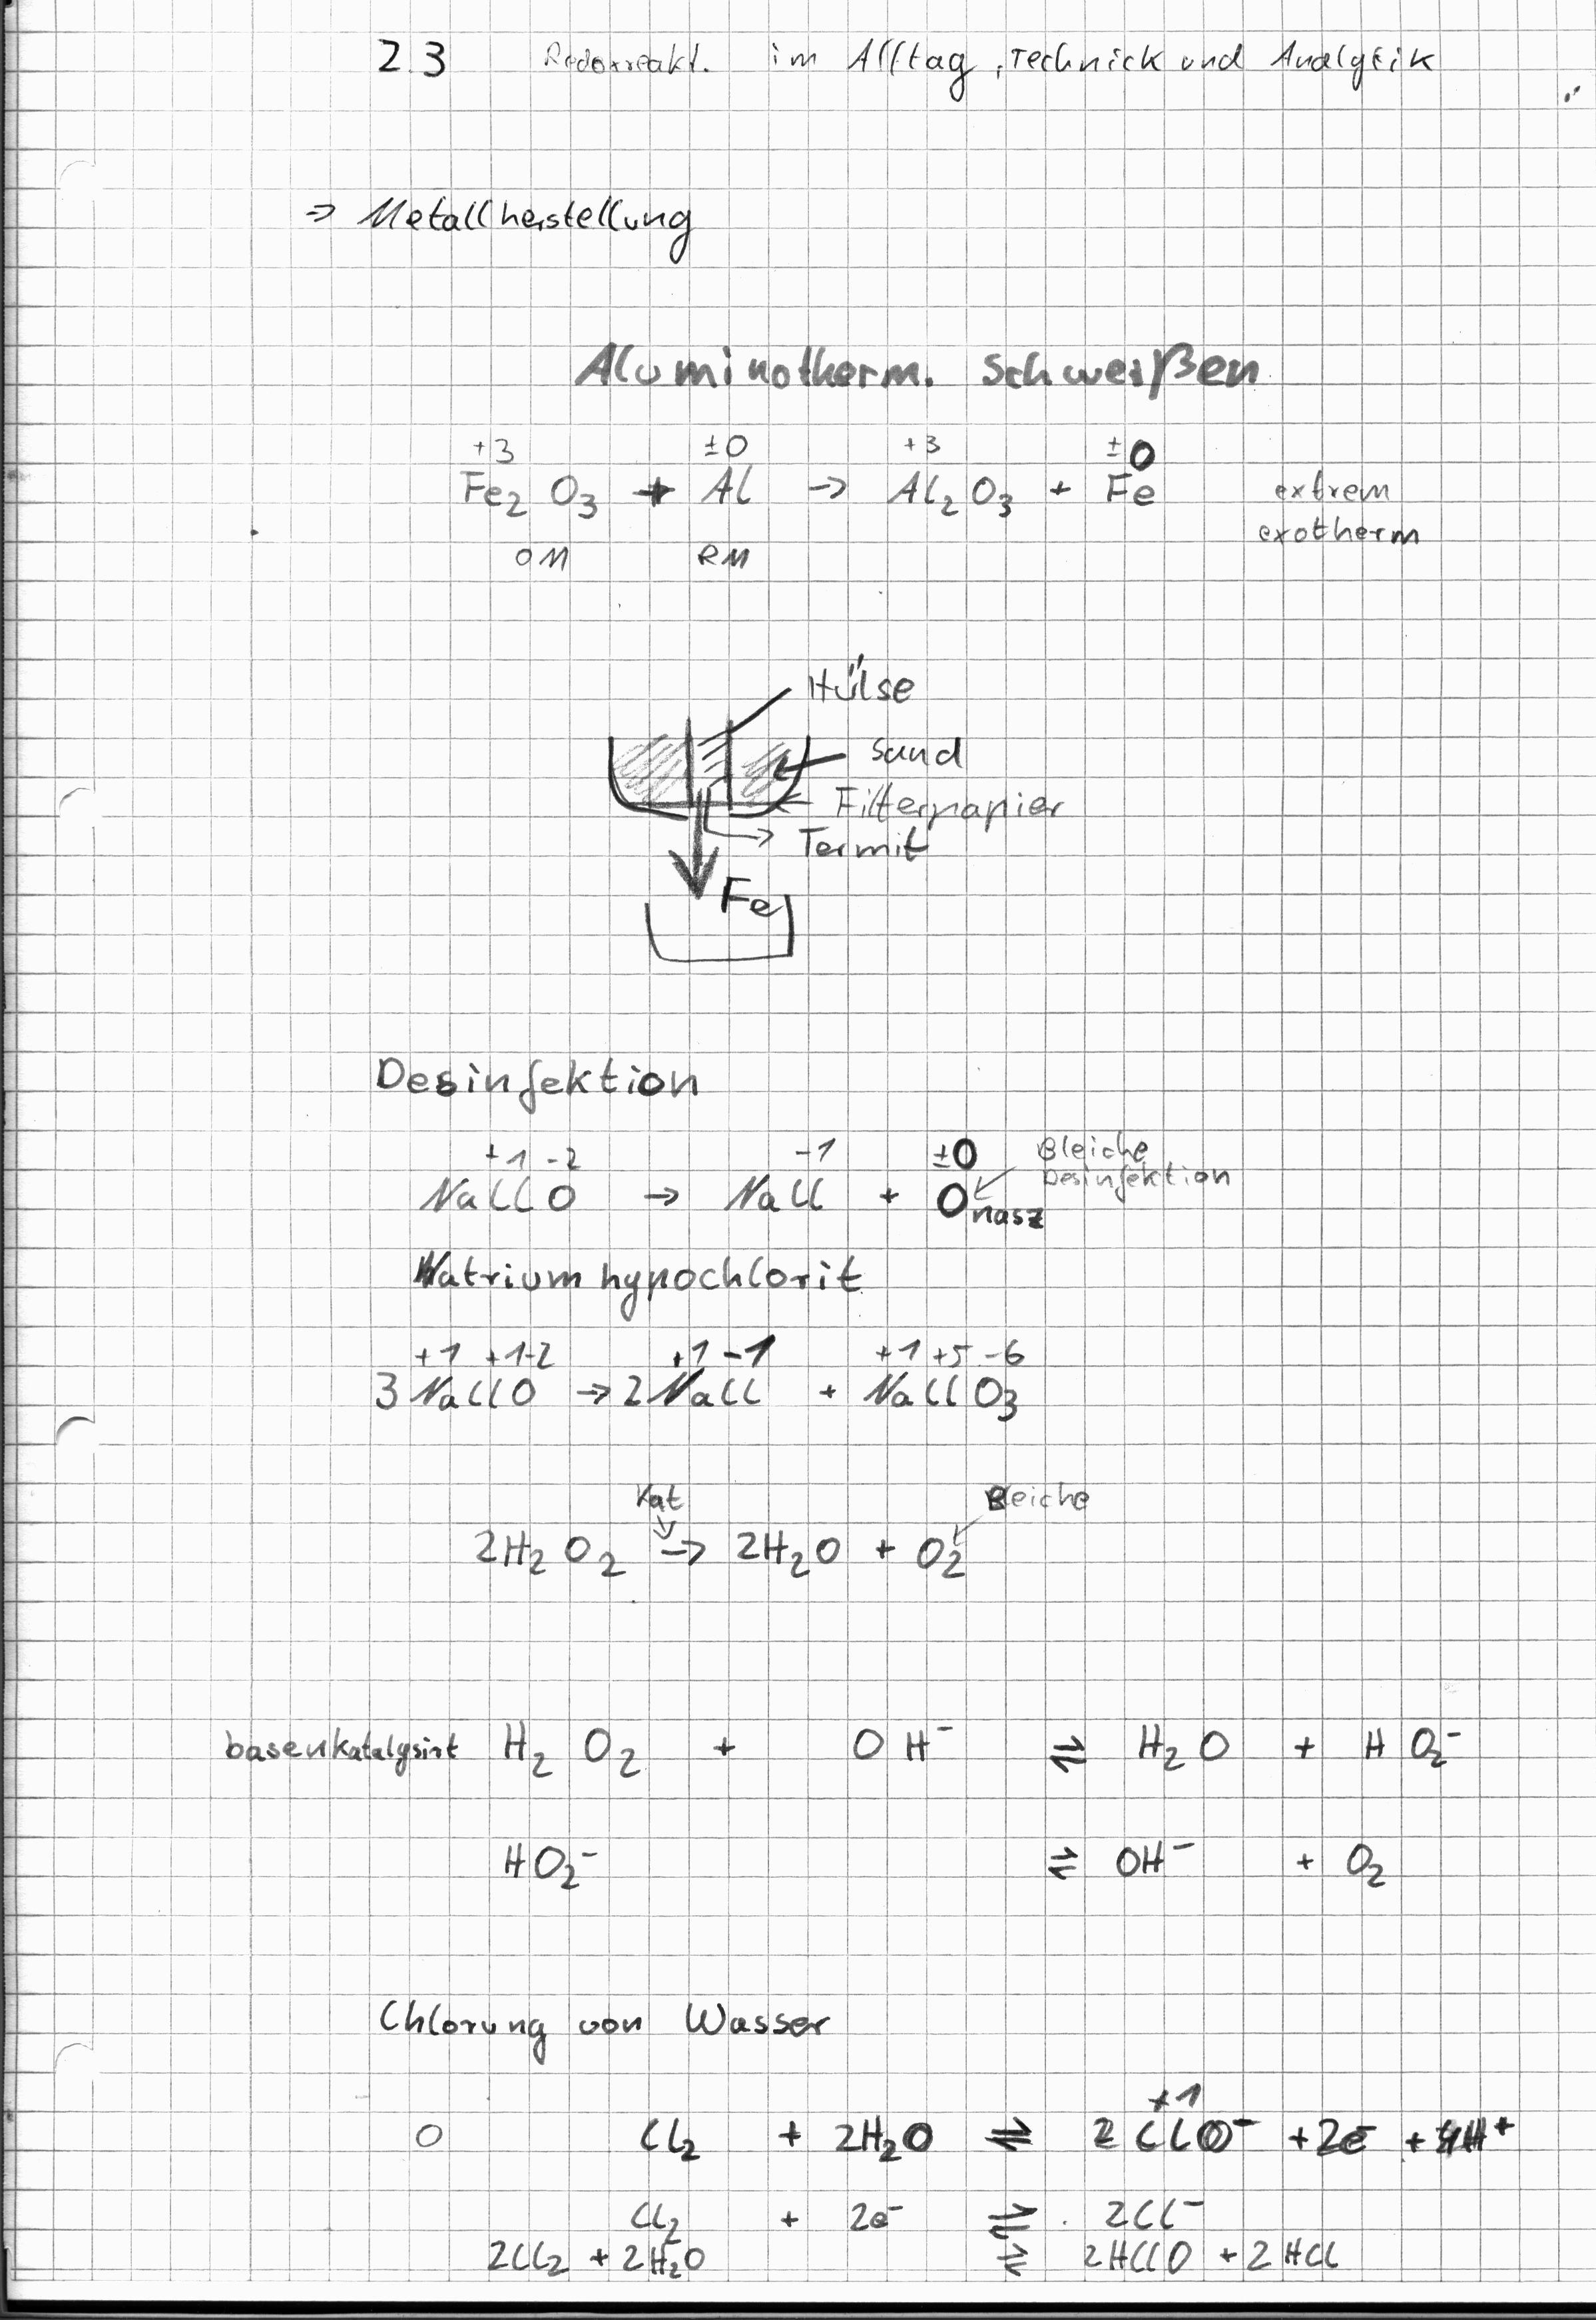 2.3 Redoxreakt. im Alltag, Technick und Analytik
⇒ Metallherstellung
Aluminotherm. Schweißen
+3 ±0 +3 ±0
Fe₂O₃ + Al → Al₂O₃ + Fe extrem
exotherm
OM RM
Hülse
Sand
Filterpapier
Termit
Fe
Desinfektion
+1 -2 -1 ±0 Bleiche
Desinfektion
NaClO → NaCl + O nasz
Natriumhypochlorit
+1 +1-2 +1 -1 +1 +5 -6
3 NaClO → 2 NaCl + NaClO₃
Kat Bleiche
2H₂O₂ → 2H₂O + O₂
basenkatalysirt H₂O₂ + OH⁻ ⇌ H₂O + HO₂⁻
HO₂⁻ ⇌ OH⁻ + O₂
Chlorung von Wasser
+1
O Cl₂ + 2H₂O ⇌ 2 ClO⁻ + 2e⁻ + 4H⁺
Cl₂ + 2e⁻ ⇌ 2Cl⁻
2Cl₂ + 2H₂O ⇌ 2HClO + 2HCl